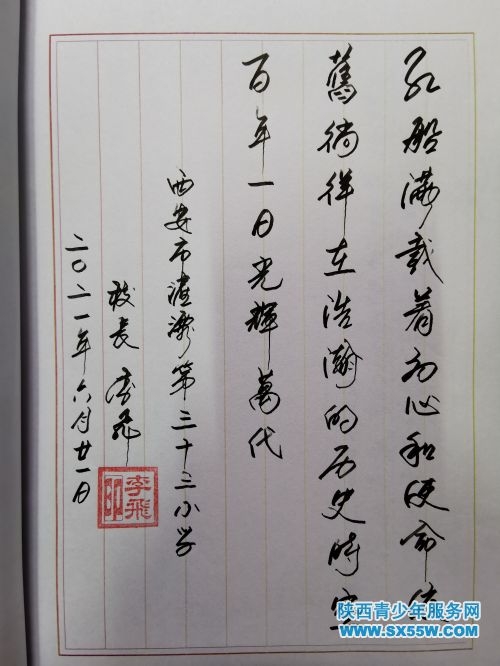 红船满载着初心和使命依
舊徜徉在浩瀚的历史時空
百年一日光輝萬代
西安市灞第三十三小学
校长 李飛
二〇二一年六月廿一日
李飛印
陕西青少年服务网
www.sx55w.com